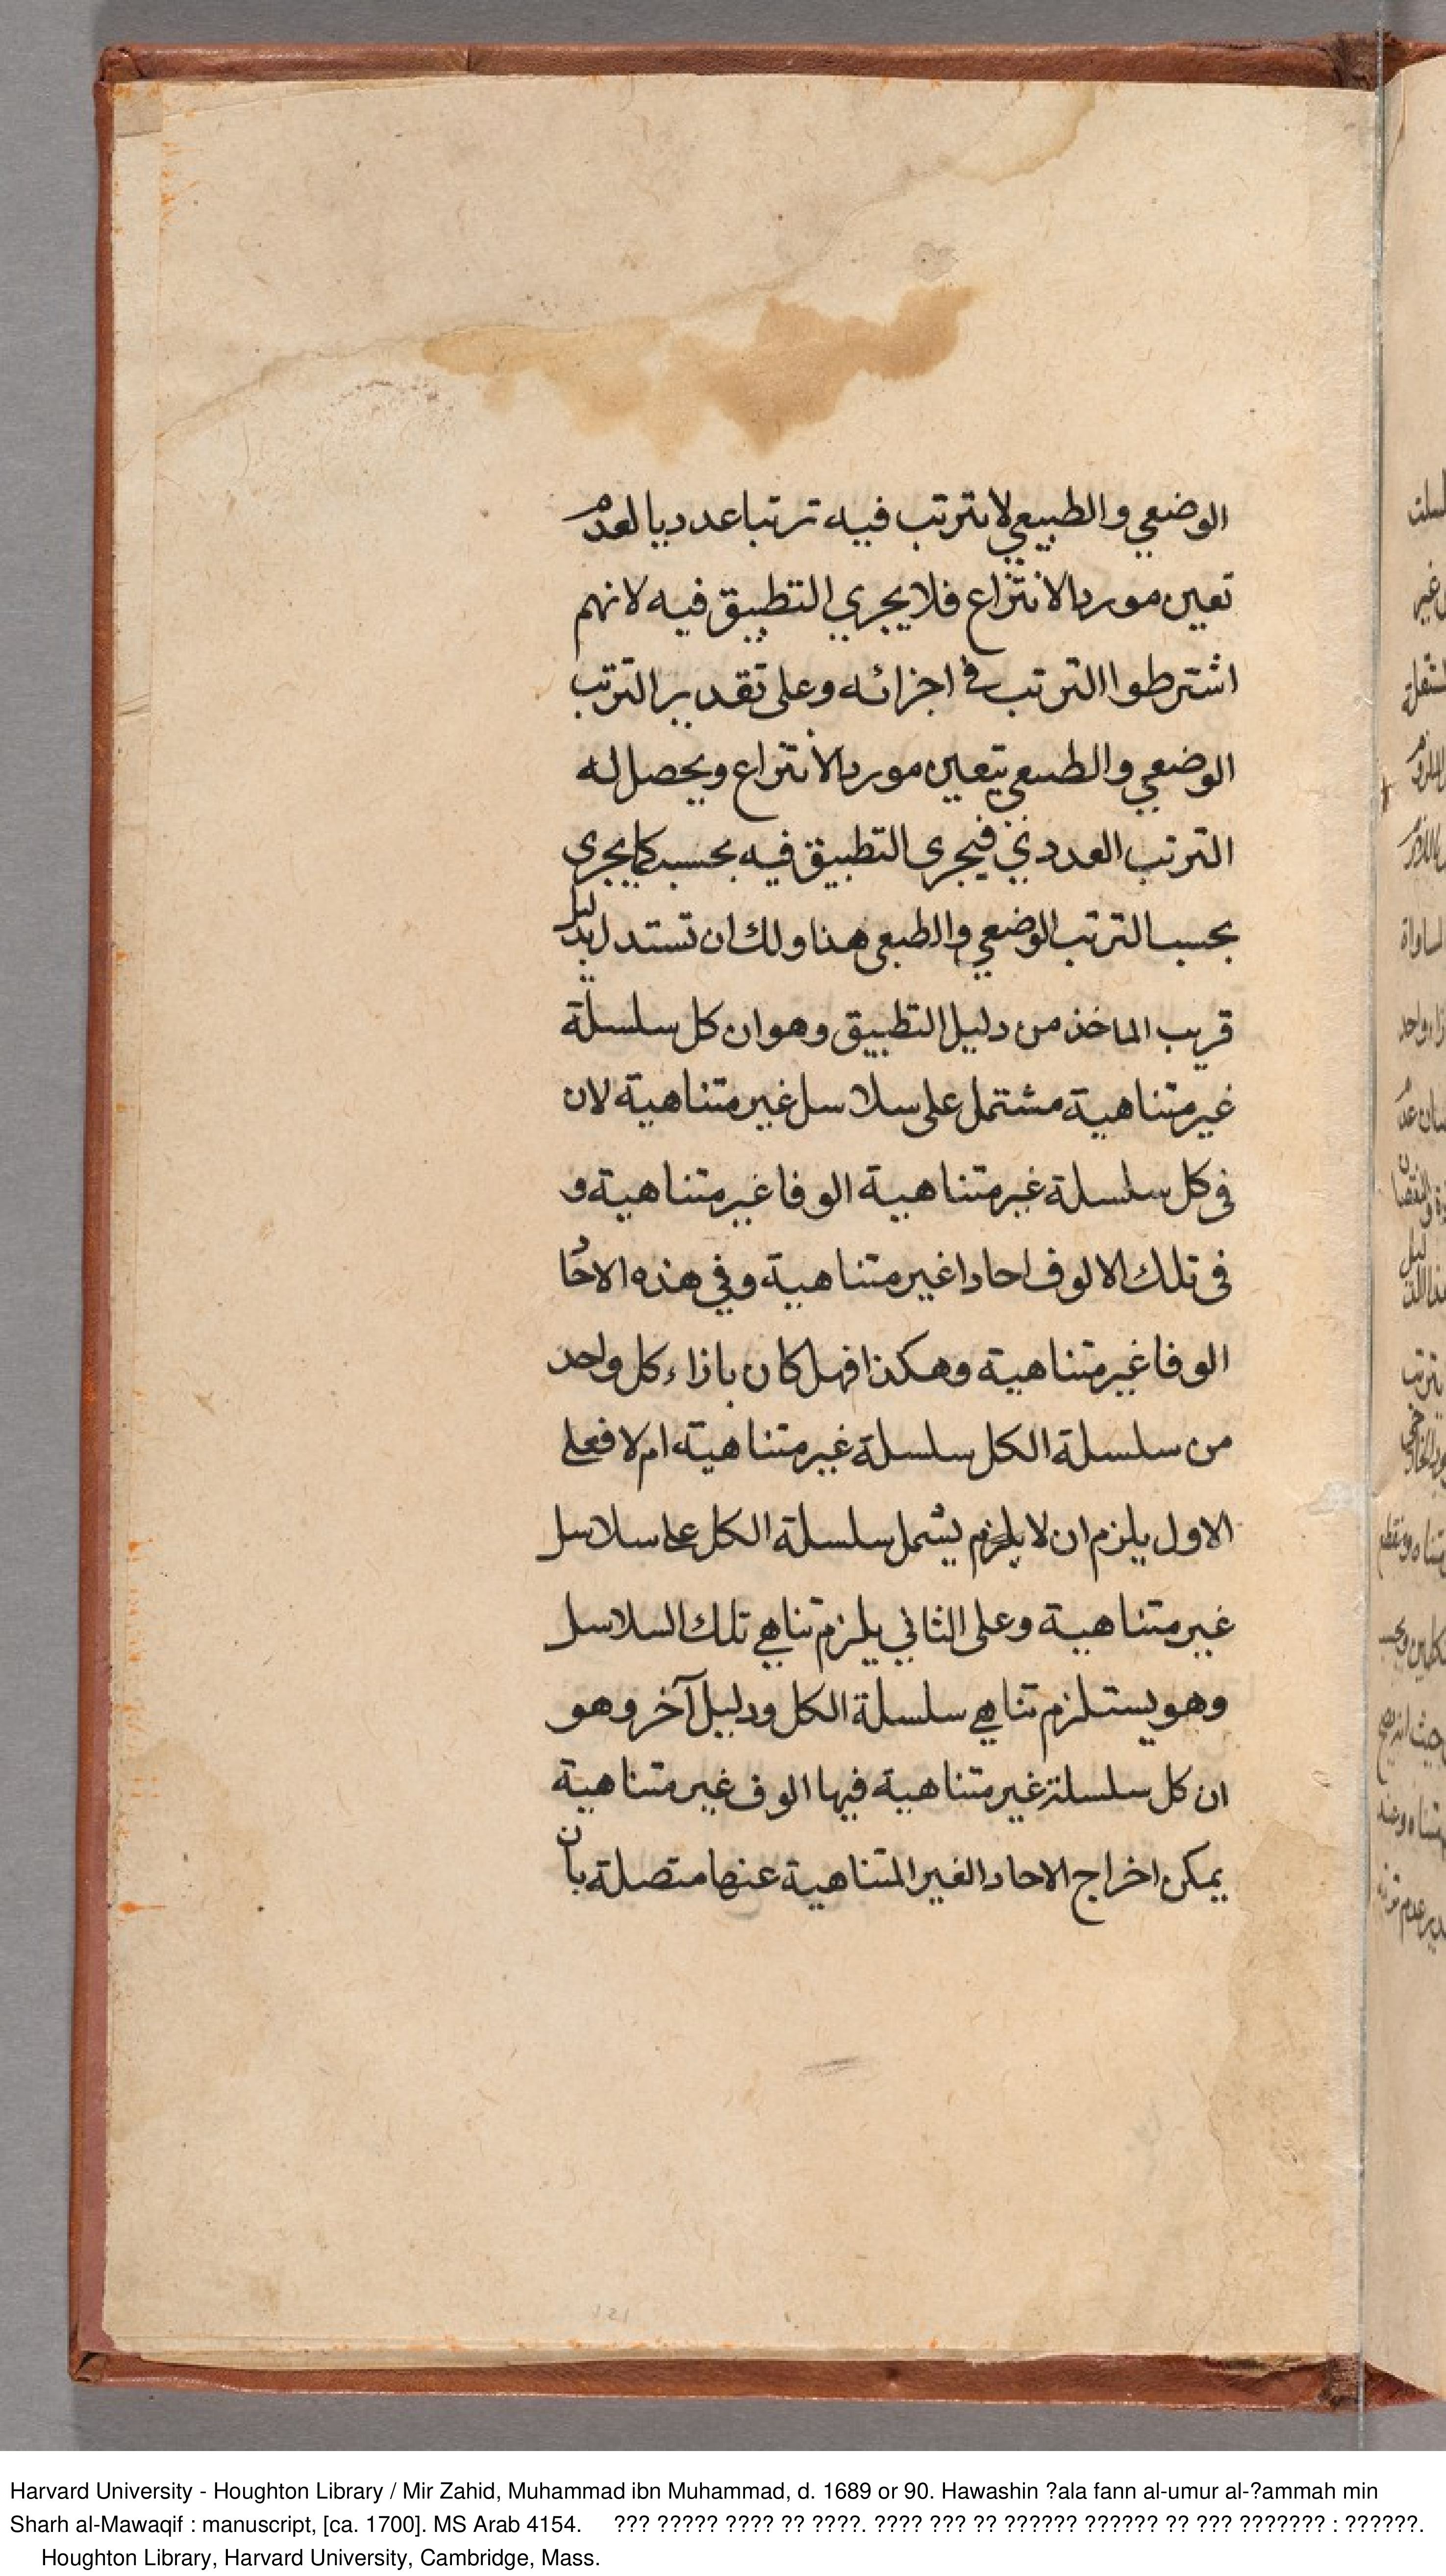 الوضعي والطبيعي لا يترتب فيه ترتبا عدديا لعدم
تعين مورد الانتزاع فلا يجري التطبيق فيه لانهم
اشترطوا الترتب في اجزائه وعلى تقدير الترتب
الوضعي والطبيعي يتعين مورد الانتزاع ويحصل له
الترتب العددي فيجري التطبيق فيه بحسبه كما يجرى
بحسب الترتب الوضعي والطبعي هذا ولك ان تستدل بدليل
قريب الماخذ من دليل التطبيق وهو ان كل سلسلة
غير متناهية مشتمل على سلاسل غير متناهية لان
فى كل سلسلة غير متناهية الوفا غير متناهية و
فى تلك الالوف احادا غير متناهية وفي هذه الاحاد
الوفا غير متناهية وهكذا فهل كان بازاء كل واحد
من سلسلة الكل سلسلة غير متناهية ام لا فعلى
الاول يلزم ان لا يلزم يشمل سلسلة الكل على سلاسل
غير متناهية وعلى الثاني يلزم تناهي تلك السلاسل
وهو يستلزم تناهي سلسلة الكل ودليل آخر وهو
ان كل سلسلة غير متناهية فيها الوف غير متناهية
يمكن اخراج الاحاد الغير المتناهية عنها متصلة بان
121
Harvard University - Houghton Library / Mir Zahid, Muhammad ibn Muhammad, d. 1689 or 90. Hawashin ?ala fann al-umur al-?ammah min
Sharh al-Mawaqif : manuscript, [ca. 1700]. MS Arab 4154. ??? ????? ???? ?? ????. ???? ??? ?? ?????? ?????? ?? ??? ??????? : ??????.
Houghton Library, Harvard University, Cambridge, Mass.